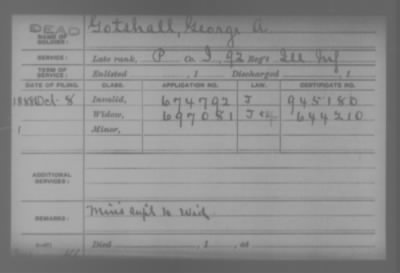 DEAD
NAME OF SOLDIER: Gotshall, George A.
SERVICE: Late rank, P Co. I, 92 Reg't Ill Inf
TERM OF SERVICE: Enlisted , 1 Discharged , 1
DATE OF FILING. CLASS. APPLICATION NO. LAW. CERTIFICATE NO.
1888 Oct. 8 Invalid, 674792 J 945180
Widow, 697081 J 644210
1 Minor,
ADDITIONAL SERVICES:
REMARKS:
to Wid
Died , 1 , at